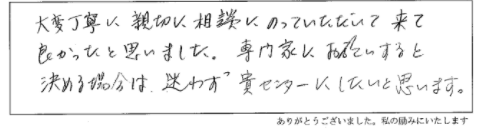 大変丁寧に親切に相談にのっていただいて来て
良かったと思いました。専門家におねがいすると
決める場合は、迷わず貴センターにしたいと思います。
ありがとうございました。私の励みにいたします